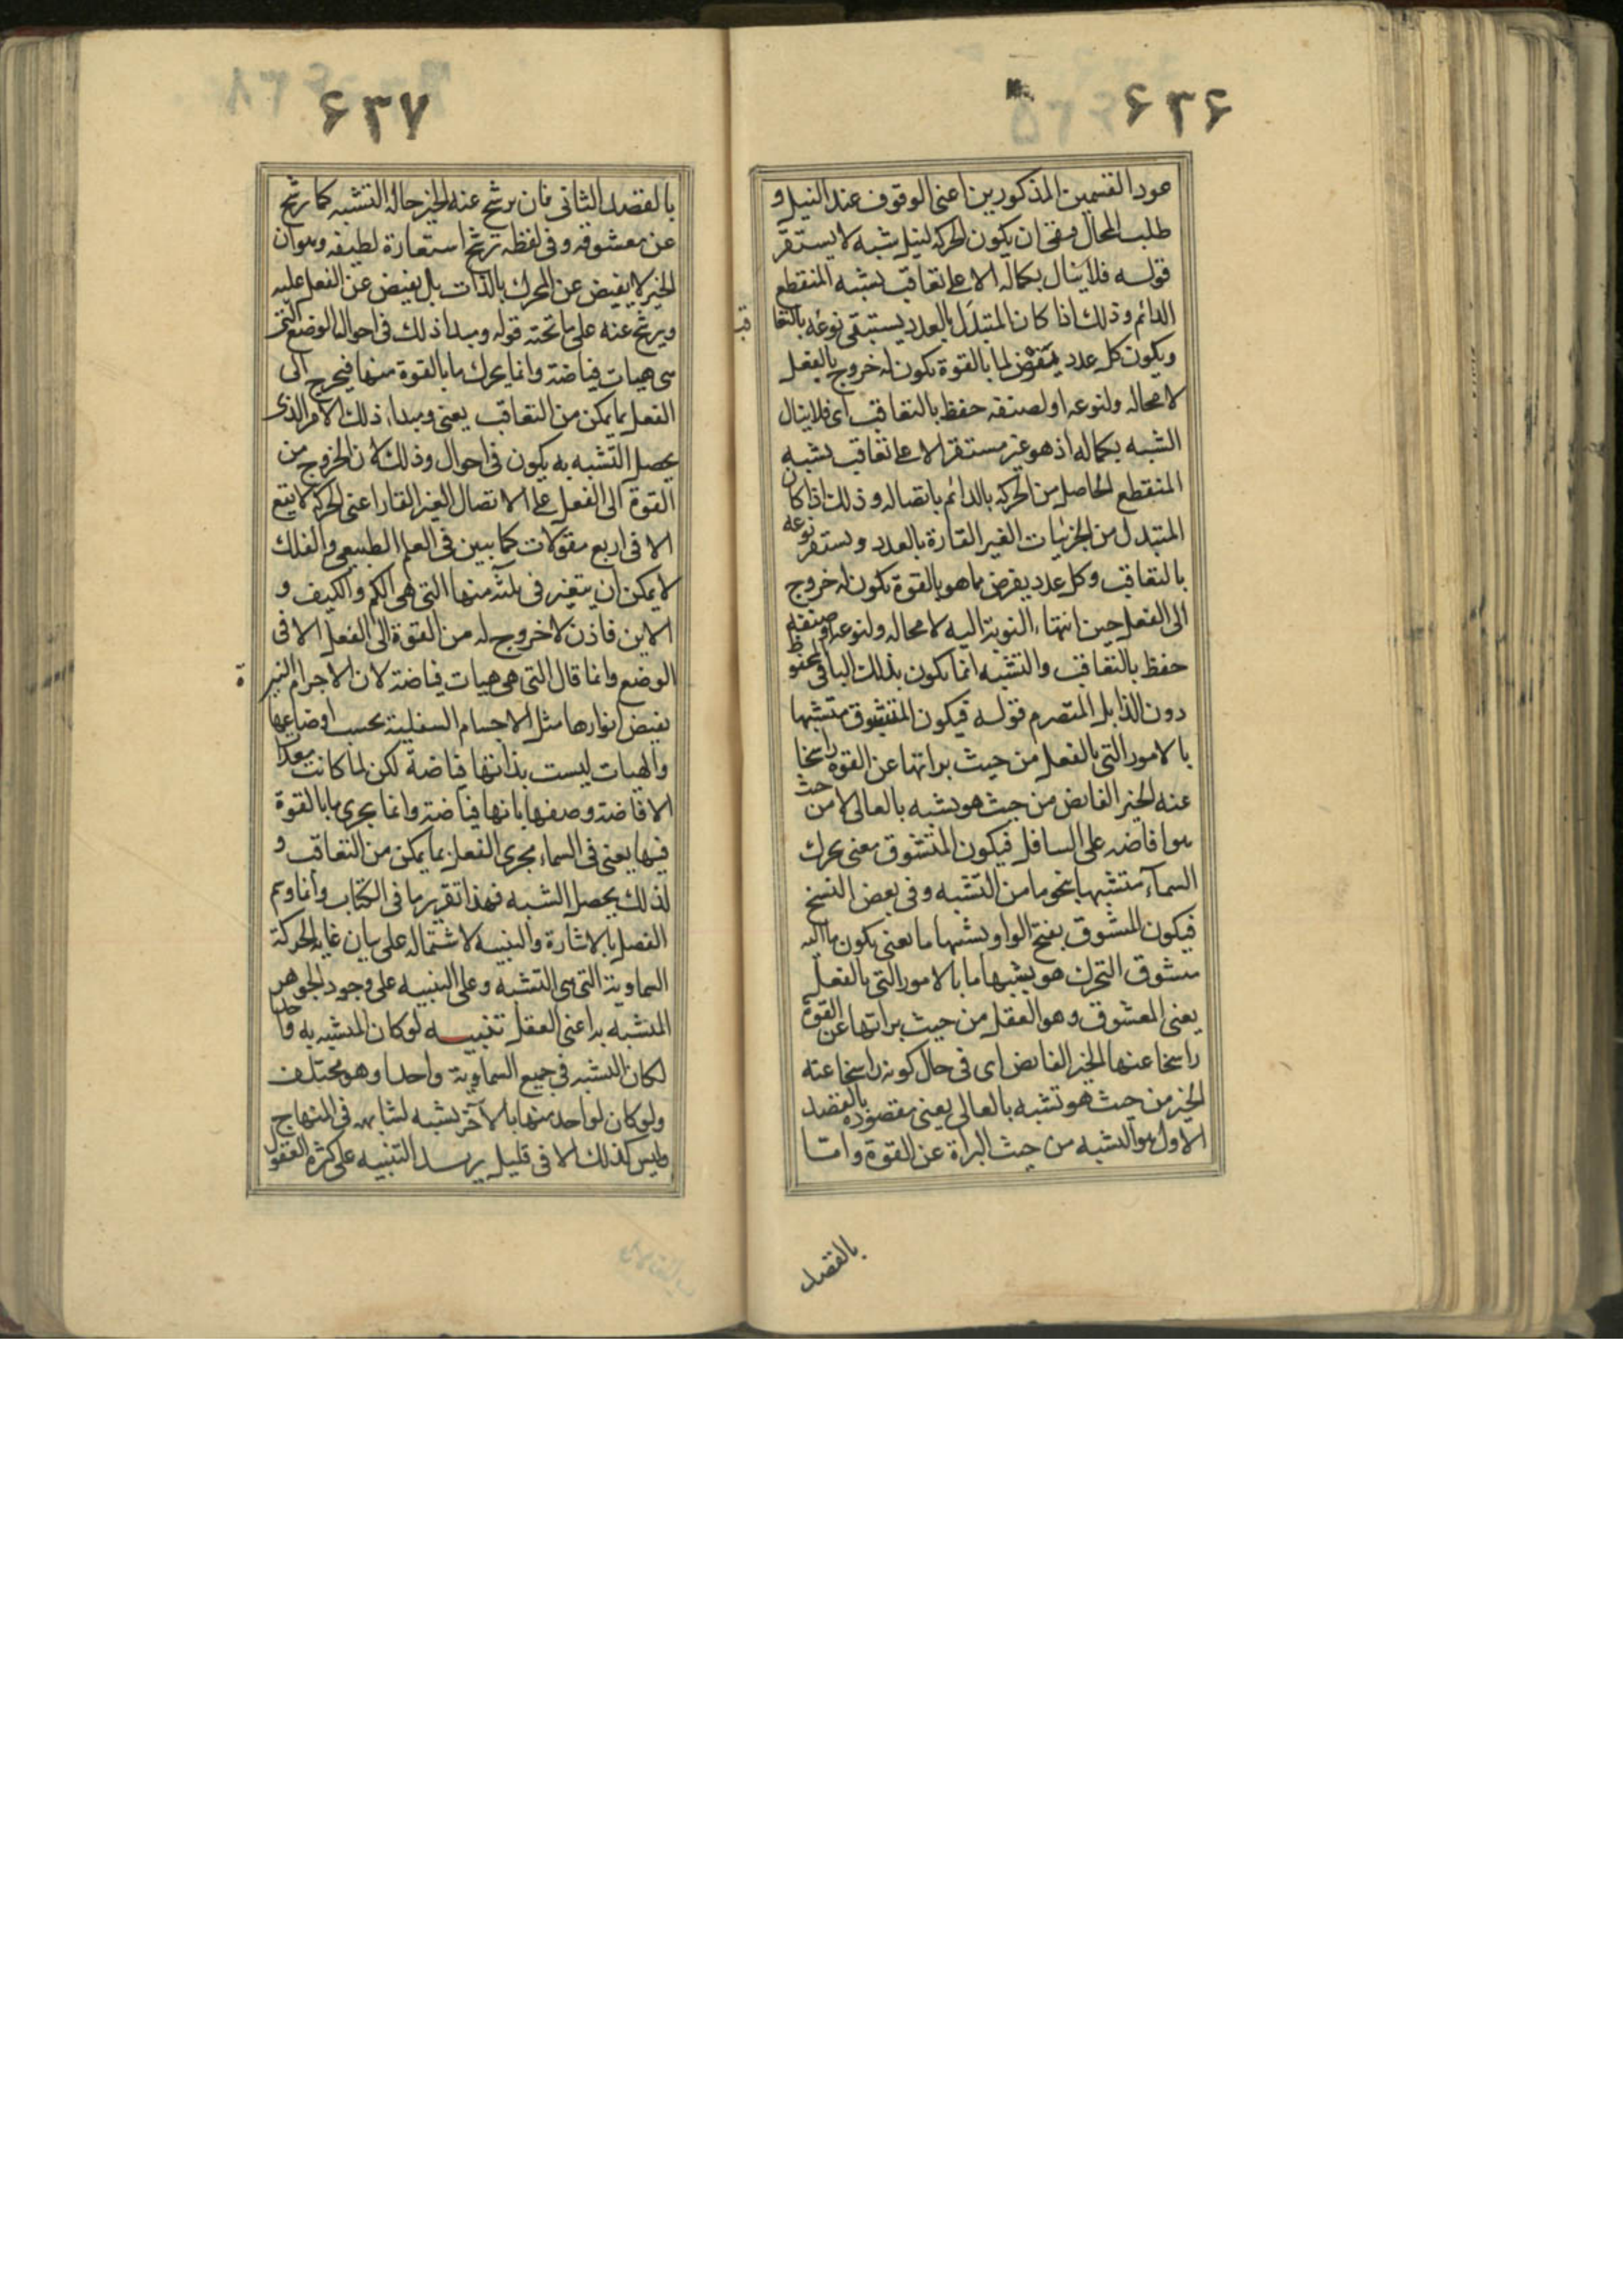 ۶۳۶
عود القسمین المذکورین اعنی الوقوف عند النیل و
طلب المحال فبقی ان یکون الحرکه لنیل شبه لا یستقر
قوله فلا ینال بکماله الا علی تعاقب یشبه المنقطع
الدائم و ذلک اذا کان المتبدل بالعدد یستبقی نوعه بالتعا
قب
و یکون کل عدد یفرض لما بالقوة یکون له خروج بالفعل
لا محاله و لنوعه او لصنفه حفظ بالتعاقب ای فلا ینال
الشبه بکماله اذ هو غیر مستقر الا علی تعاقب یشبه
المنقطع الحاصل من الحرکه بالدائم باتصاله و ذلک اذا کان
المتبدل من الجزئیات الغیر القارة بالعدد و یستقر نوعه
بالتعاقب و کل عدد یفرض مما هو بالقوة یکون له خروج
الی الفعل حین انتهاء النوبة الیه لا محاله و لنوعه او صنفه
حفظ بالتعاقب و التشبه انما یکون بذلک الباقی المحفوظ
دون الذابل المتصرم قوله فیکون المتشوق متشبها
بالامور التی بالفعل من حیث برائتها عن القوه راسخا
عنه الخیر الفایض من حیث هو یشبه بالعالی لا من حیث
هو افاضه علی السافل فیکون المتشوق معنی محرک
السمآء متشبها بنحو ما من التشبه و فی بعض النسخ
فیکون المتشوق بفتح الواو و یشبها ما یعنی یکون ما الیه
یتشوق المتحرک هو یشبها ما بالامور التی بالفعل
یعنی المعشوق و هو العقل من حیث برائتها عن القوة
راسخا عنها الخیر الفایض ای فی حال کونه راسخا عنه
الخیر من حیث هو تشبه بالعالی یعنی مقصوده بالقصد
الاول هو التشبه من حیث البراة عن القوة و امّا
بالقصد
۶۳۷
بالقصد الثانی فان یرشح عنه الخیر حالة التشبه کما رشح
عن معشوقه و فی لفظه ترشح استعارة لطیفه و هو ان
الخیر لا یفیض عن المحرک بالذات بل یفیض عن الفعل علیه
و یرشح عنه علی ما تحته قوله و مبدا ذلک فی احوال الوضع التی
هی هیات فیاضة و انما یحرک ما بالقوة منها فیخرج الی
الفعل بما یمکن من التعاقب یعنی و مبداء ذلک الامر الذی
یحصل التشبه به یکون فی احوال و ذلک لان الخروج من
القوة الی الفعل علی الاتصال الغیر القار اعنی الحرکه لا یقع
الا فی اربع مقولات کما یبین فی العلم الطبیعی و الفلک
لا یمکن ان یتغیر فی ثلثة منها التی هی الکم و الکیف و
الاین فاذن لا خروج له من القوة الی الفعل الا فی
الوضع و انما قال التی هی هیات فیاضة لان الاجرام النیر
ة
یفیض انوارها مثل الاجسام السفلیة بحسب اوضاعها
و الهیات لیست بذاتها فیاضة لکن لما کانت معدات
الافاضة وصفها بانها فیاضة و انما یجری ما بالقوة
فیها یعنی فی السماء مجری الفعل بما یمکن من التعاقب و
لذلک یحصل الشبه فهذا تقریر ما فی الکتاب و انما وسم
الفصل بالاشارة و التنبیه لاشتماله علی بیان غایة الحرکة
السماویة التی هی التشبه و علی التنبیه علی وجود الجوهر
المتشبه به اعنی العقل تنبیه لو کان المتشبه به واحدا
لکان التشبه فی جمیع السماویة واحدا و هو مختلف
و لو کان لواحد منها بالآخر یشبه لشابهه فی المنهاج
و لیس کذلک الا فی قلیل یرید التنبیه علی کثرة العقول